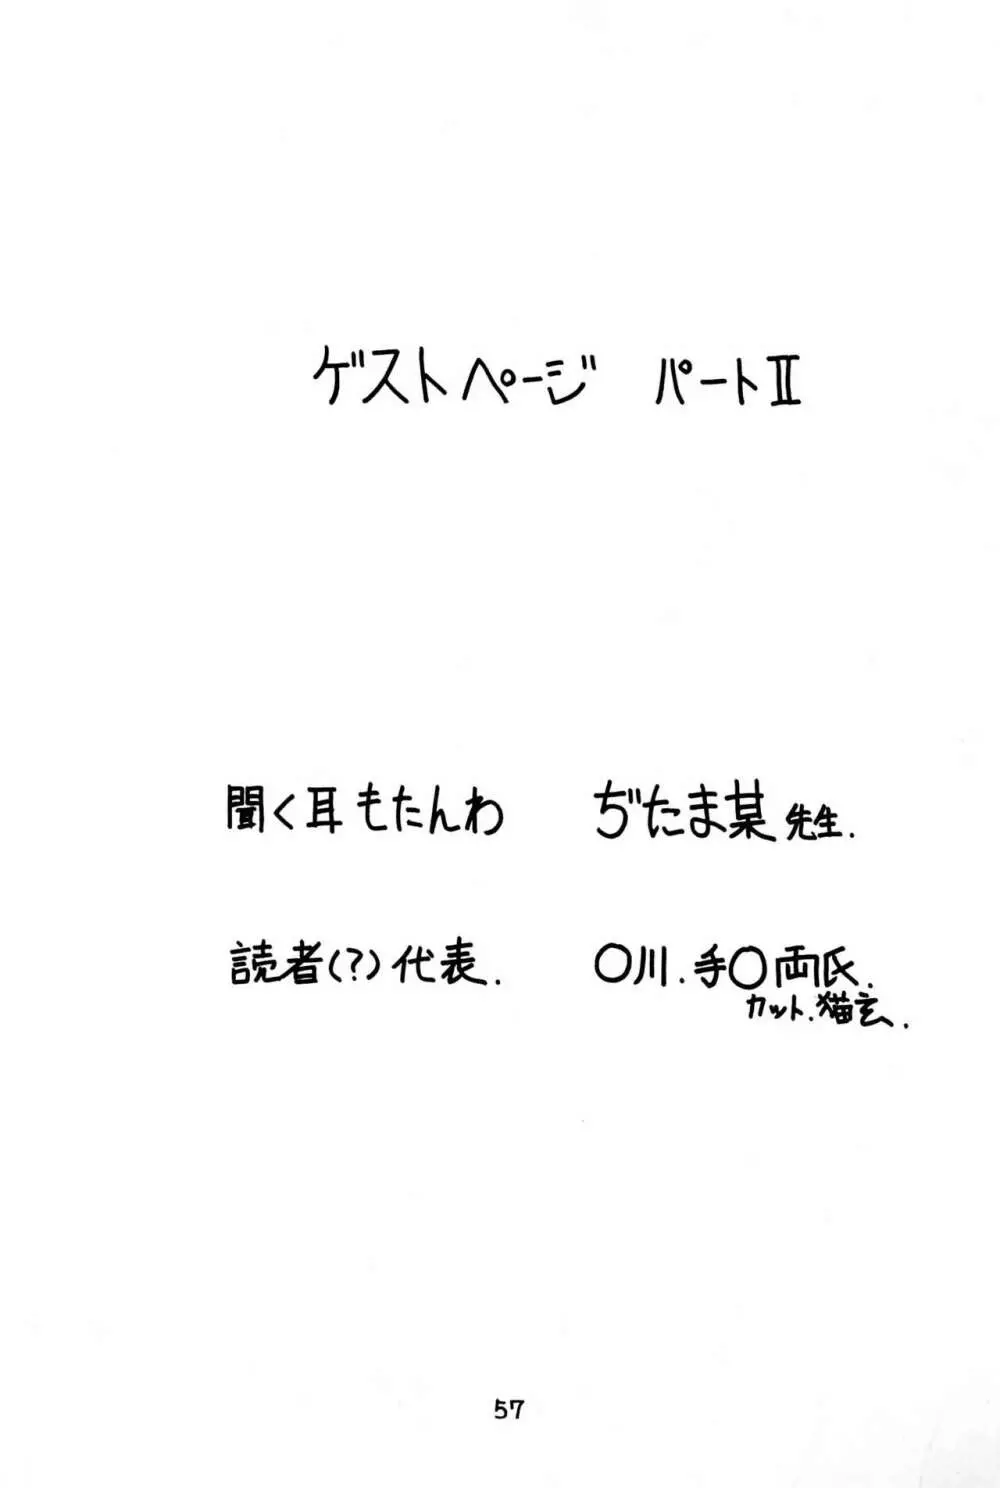 ゲストページ　パートⅡ
聞く耳もたんわ　ぢたま某先生.
読者(?)代表.　〇川.手〇両氏.
カット.猫玄.
57